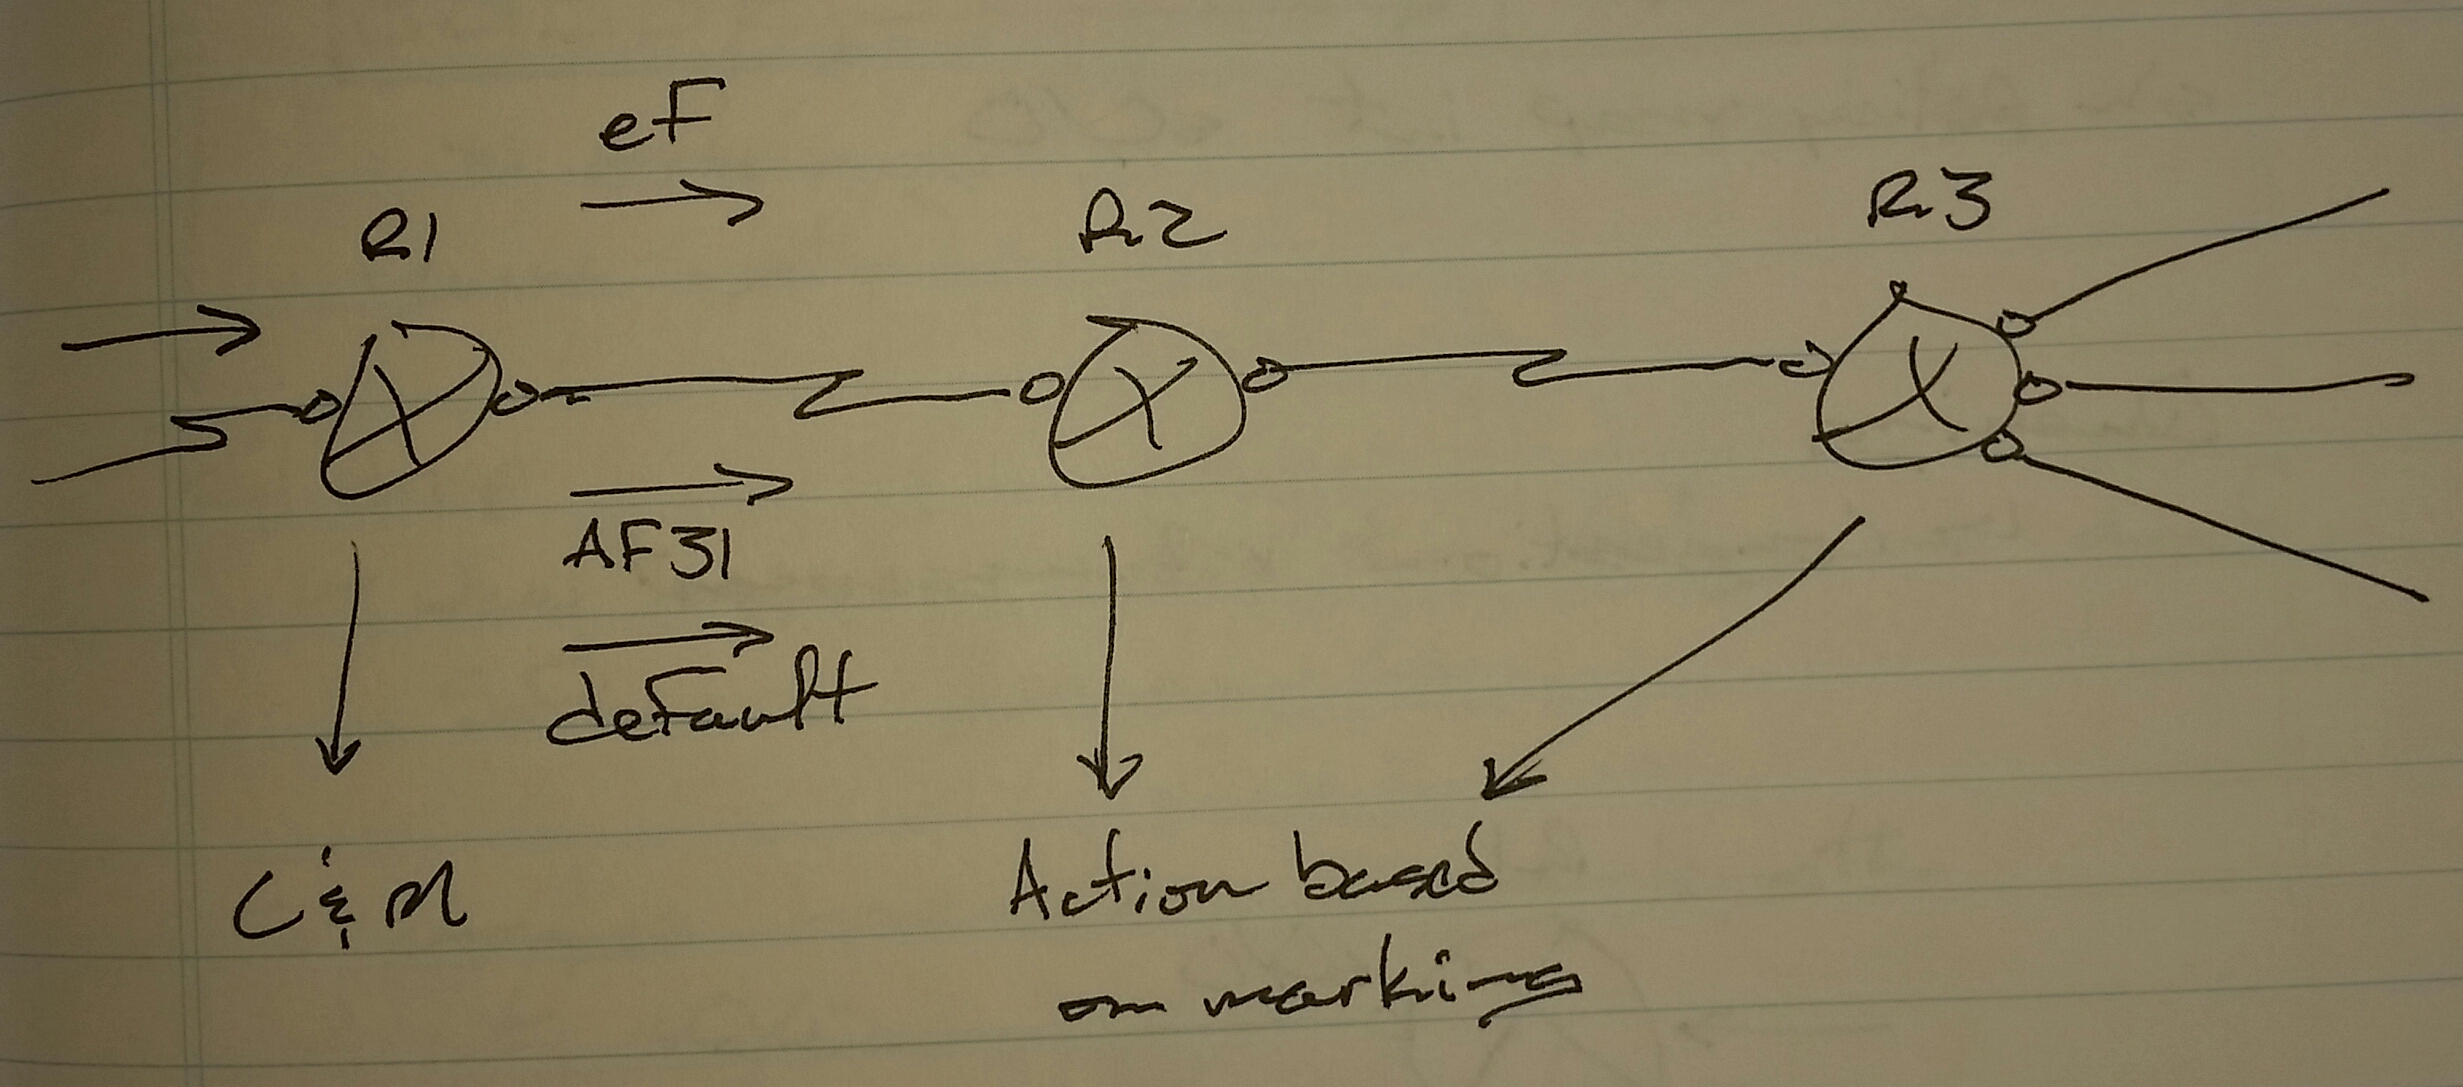 eF
R1
R2
R3
AF31
default
C & M
Action based
on marking